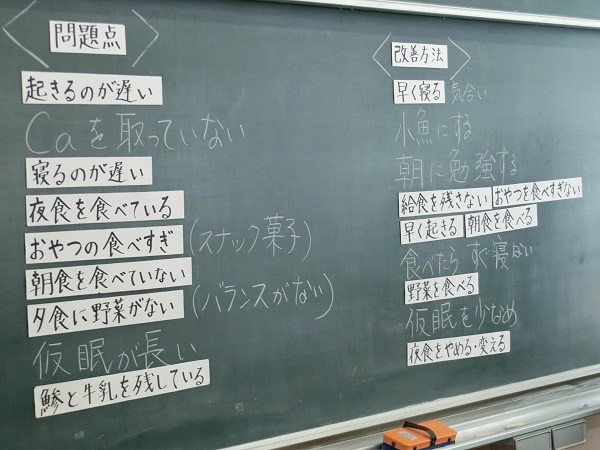 〈問題点〉
起きるのが遅い
Caを取っていない
寝るのが遅い
夜食を食べている
おやつの食べすぎ(スナック菓子)
朝食を食べていない
夕食に野菜がない(バランスがない)
仮眠が長い
鯵と牛乳を残している
〈改善方法〉
早く寝る 気合い
小魚にする
朝に勉強する
給食を残さない おやつを食べすぎない
早く起きる 朝食を食べる
食べたらすぐ寝ない
野菜を食べる
仮眠を少なめ
夜食をやめる・変える